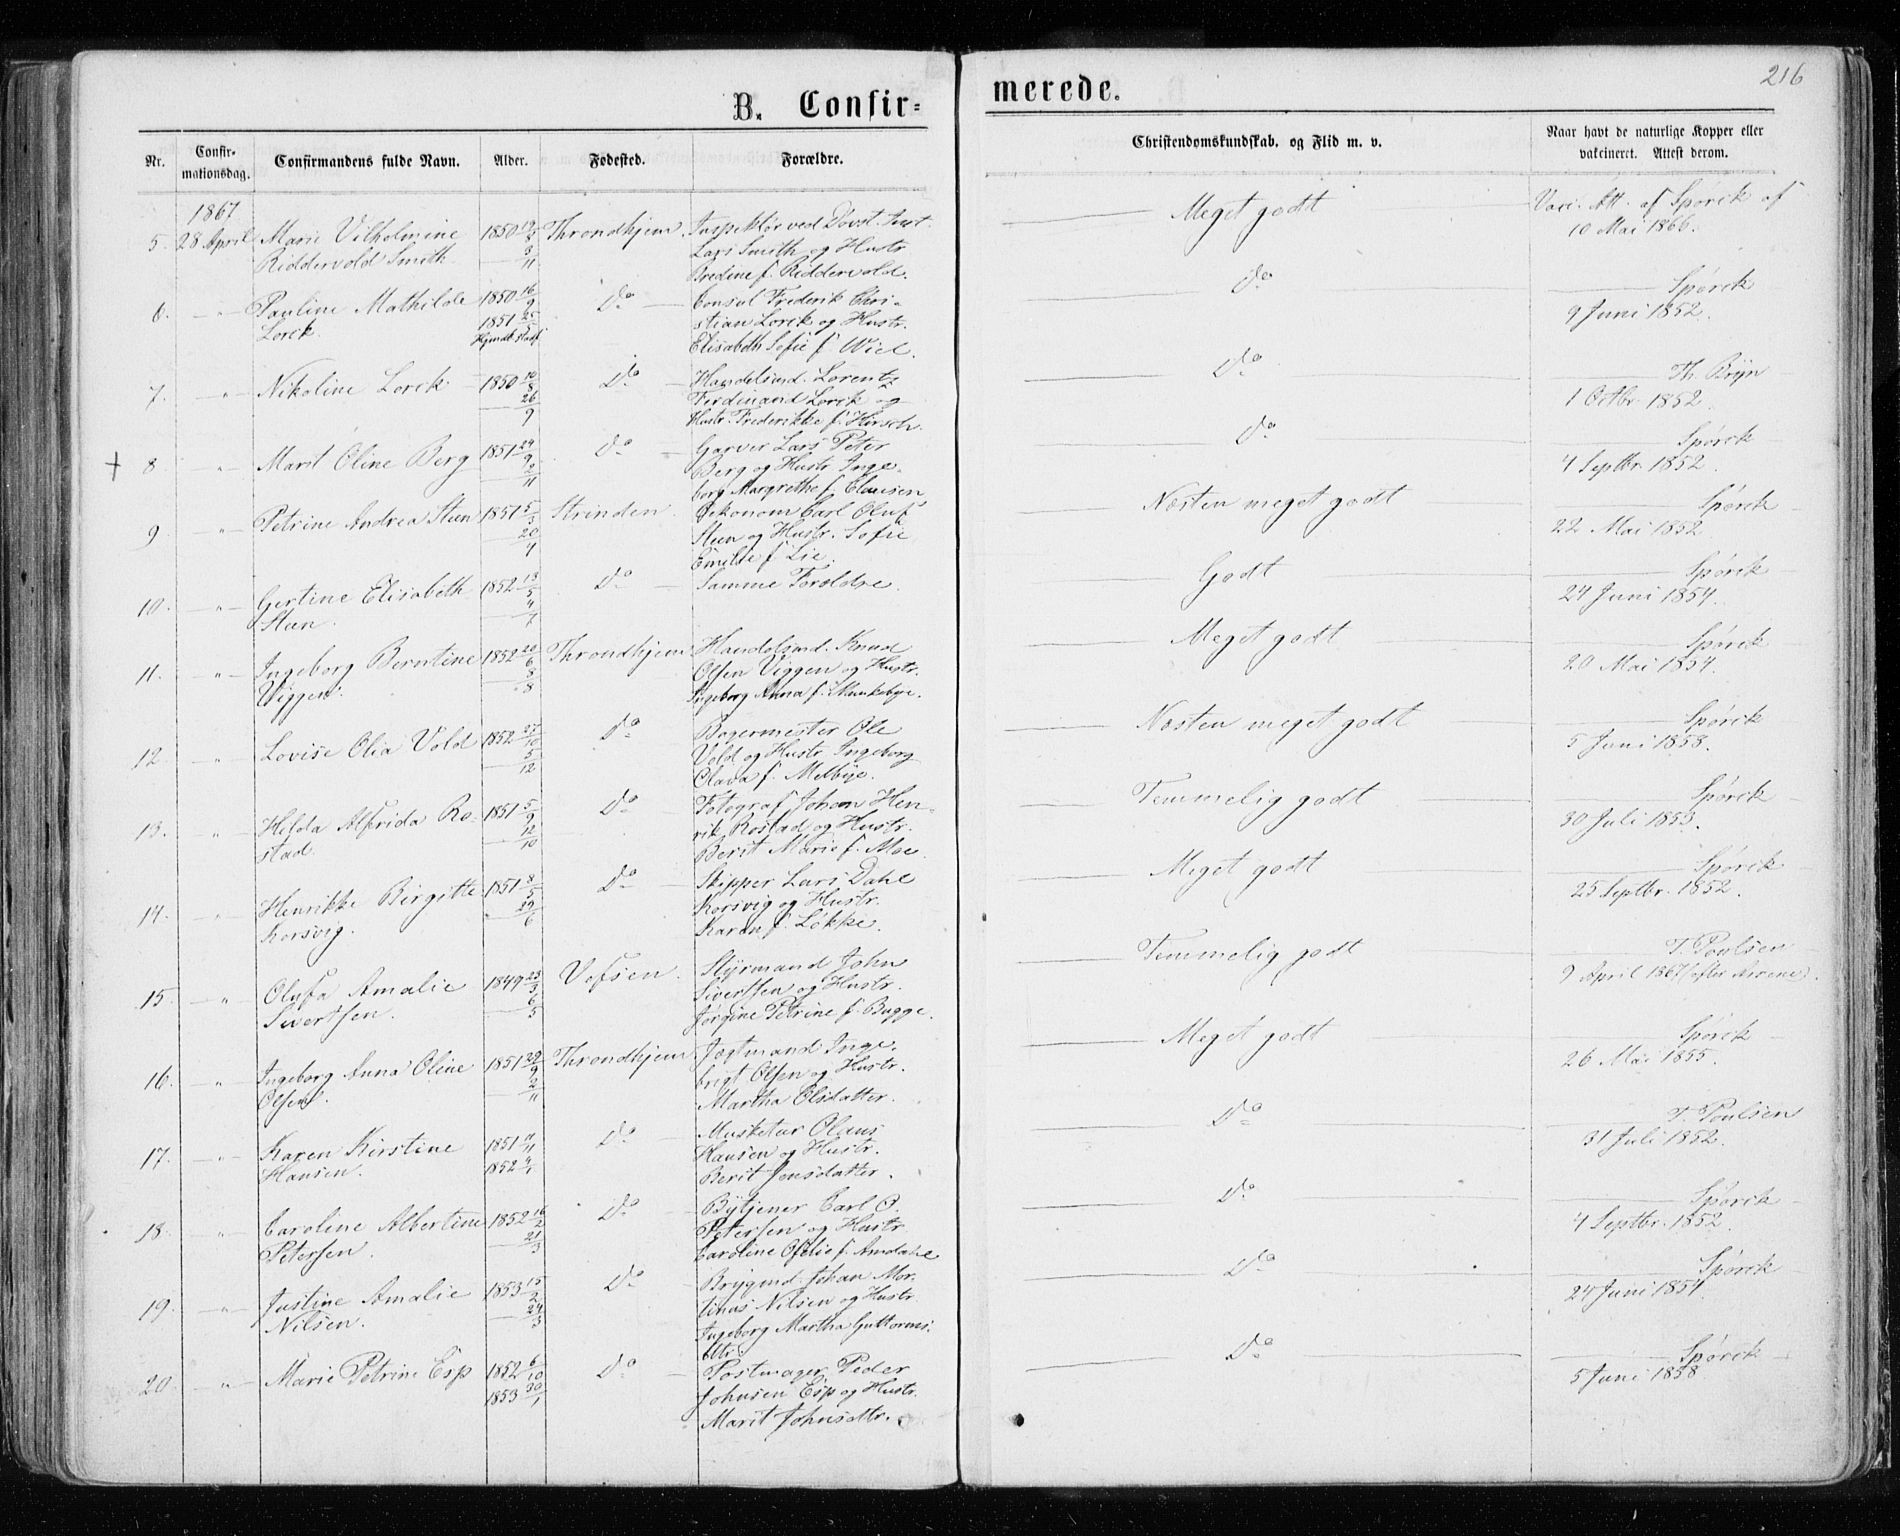 216
B. Confir=
merede.
Nr.
Confir-
mationsdag.
Confirmandens fulde Navn.
Alder.
Fødested.
Forældre.
Christendomskundskab, og Flid m. v.
Naar havt de naturlige Kopper eller
vakcineret. Attest derom.
1867
5. 28 April Marie Vilhelmine 1850 19/8 Throndhjem. Inspektør ved Døvst. Inst. Meget godt Vacc. Att. af Spørck af
Riddervold Smith 3/11 Lars Smith og Hustr. 10 Mai 1866.
Bredine f. Riddervold.
6. " Pauline Mathilde 1850 16/9 Do Consul Frederik Chri- Do Spørck
Lorck. 1851 25/5 stian Lorck og Hustr. 9 Juni 1852.
Hjemdbt stadf. Elisabeth Sofie f. Wiel.
7. " Nikoline Lorck 1850 10/8 Do Handelsmd. Lorentz Do Th. Bryn
26/9 Ferdinand Lorck og 1 Octbr. 1852.
Hustr. Frederikke f. Hirsch.
+ 8 " Marit Oline Berg 1851 24/9 Do Garver Lars Peter Do Spørck
2/11 Berg og Hustr. Inge- 4 Septbr. 1852.
borg Margrethe f. Clausen
9 " Petrine Andrea Steen 1851 5/3 Strinden. Oekonom Carl Oluf Næsten meget godt Spørck
20/4 Steen og Hustr. Sofie 22 Mai 1852.
Emilie f. Lie.
10. " Gertine Elisabeth 1852 13/5 Do Samme Forældre. Godt Spørck
Steen. 4/7 24 Juni 1854.
11. " Ingeborg Berntine 1852 20/6 Throndhjem Handelsmd. Knud Meget godt Spørck
Viggen. 8/8 Olsen Viggen og Hustr. 20 Mai 1854.
Ingeborg Anna f. Munkebye.
12. " Lovise Olia Vold 1852 27/10 Do Bagermester Ole Næsten meget godt Spørck
5/12 Vold og Hustr. Ingeborg 5 Juni 1858.
Olava f. Melbye.
13. " Hilda Alfrida Ro- 1851 5/9 Do Fotograf Johan Hen- Temmelig godt Spørck
stad. 12/10 rik Rostad og Hustr. 30 Juli 1853.
Berit Marie f. Moe.
14. " Henrikke Birgitte 1851 8/5 Do Skipper Lars Dahl Meget godt Spørck
Korsvig. 29/6 Korsvig og Hustr. 25 Septbr. 1852.
Karen f. Løkke.
15. " Olufa Amalie 1849 23/3 Vefsen. Styrmand John Temmelig godt T. Poulsen
Sivertsen. 6/5 Sivertsen og Hustr. 9 April 1867 (efter Arrene).
Jørgine Petrine f. Bugge.
16. " Ingeborg Anna Oline 1851 29/9 Throndhjem Jægtmand Inge- Meget godt Spørck
Olsen. 2/11 brigt Olsen og Hustr. 26 Mai 1855.
Martha Olsdatter.
17. " Karen Kirstine 1851 11/11 Do Musketør Olaus Do T. Poulsen
Hansen. 1852 4/1 Hansen og Hustr. 31 Juli 1852.
Berit Jensdatter.
18. " Caroline Albertine 1852 16/2 Do Bytjener Carl O. Do Spørck
Petersen. 21/3 Petersen og Hustr. 4 Septbr. 1852.
Caroline Ofelie f. Amdahl
19. " Justine Amalie 1853 15/2 Do Brygmd. Johan Mor- Do Spørck
Nilsen. 24/3 tinus Nilsen og Hustr. 24 Juni 1854.
Ingeborg Martha Guttorms-
dttr.
20 " Marie Petrine Esp 1852 6/10 Do Postmager Peder Do Spørck
1853 30/1 Johnsen Esp og Hustr. 5 Juni 1858
Marit Johnsdttr.